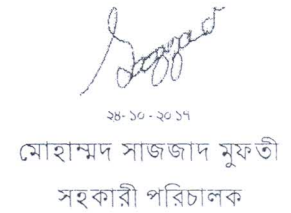 Sazzad
২৪-১০-২০১৭
মোহাম্মদ সাজজাদ মুফতী
সহকারী পরিচালক